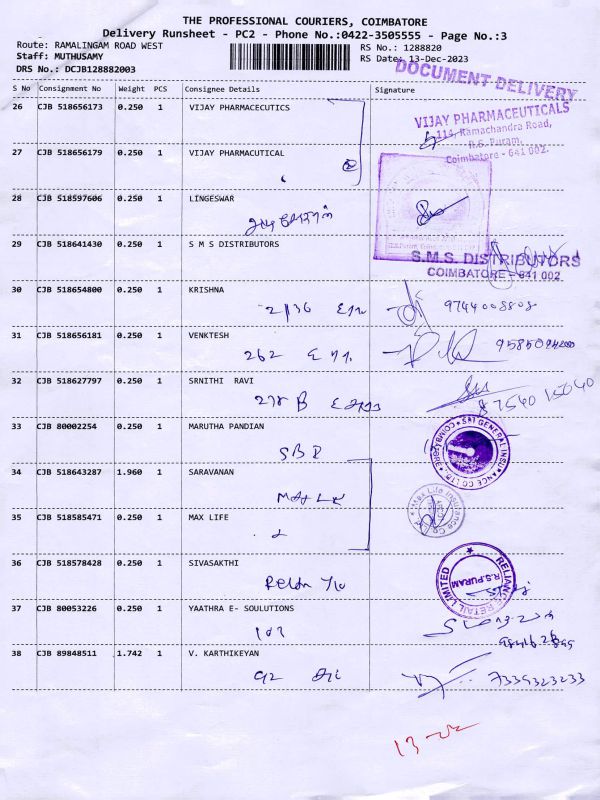 THE PROFESSIONAL COURIERS, COIMBATORE
Delivery Runsheet - PC2 - Phone No.:0422-3505555 - Page No.:3
Route: RAMALINGAM ROAD WEST
RS No.: 1288820
Staff: MUTHUSAMY
RS Date: 13-Dec-2023
DRS No.: DCJB128882003
DOCUMENT DELIVERY
S No Consignment No Weight PCS Consignee Details Signature
26 CJB 518656173 0.250 1 VIJAY PHARMACECUTICS
VIJAY PHARMACEUTICALS
114, Ramachandra Road,
R.S. Puram,
Coimbatore - 641 002.
27 CJB 518656179 0.250 1 VIJAY PHARMACUTICAL
28 CJB 518597606 0.250 1 LINGESWAR
29 CJB 518641430 0.250 1 S M S DISTRIBUTORS
S.M.S. DISTRIBUTORS
COIMBATORE - 641 002
30 CJB 518654800 0.250 1 KRISHNA
9744008808
31 CJB 518656181 0.250 1 VENKTESH
262
32 CJB 518627797 0.250 1 SRNITHI RAVI
87540 15040
33 CJB 80002254 0.250 1 MARUTHA PANDIAN
SBI GENERAL INSURANCE CO LTD. COIMBATORE
34 CJB 518643287 1.960 1 SARAVANAN
35 CJB 518585471 0.250 1 MAX LIFE
Life Insurance Co
36 CJB 518578428 0.250 1 SIVASAKTHI
RELIANCE RETAIL LIMITED
R.S.PURAM
37 CJB 80053226 0.250 1 YAATHRA E- SOULUTIONS
38 CJB 89848511 1.742 1 V. KARTHIKEYAN
7339323233